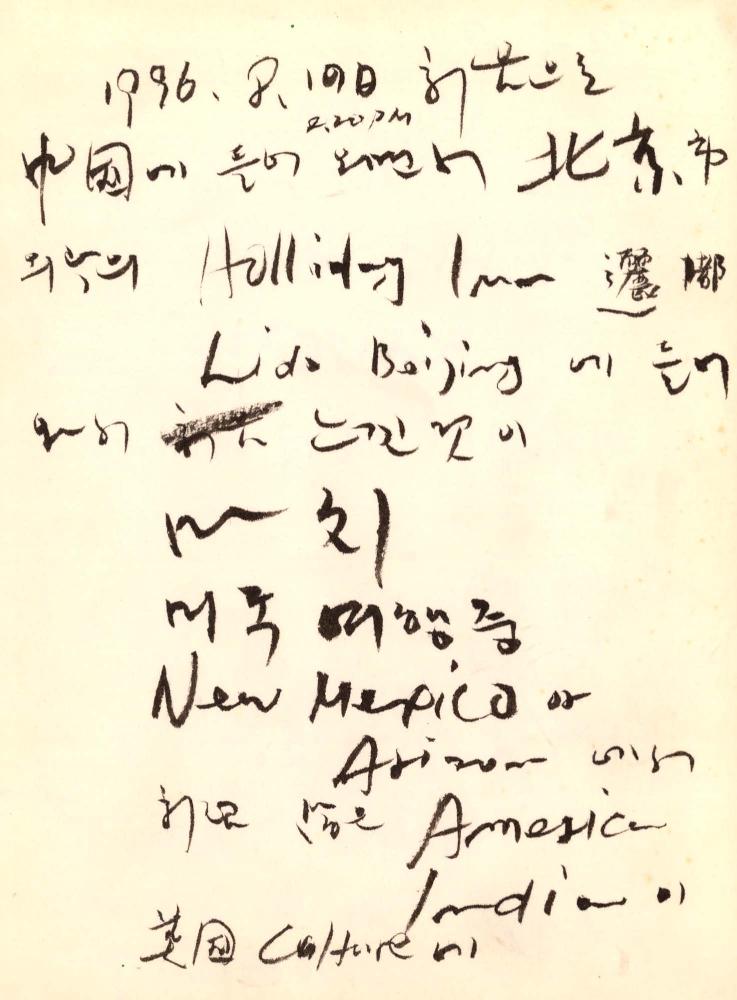 1996. 8. 19日 처음으로
2.20 PM
中國에 들어 오면서 北京市
외곽의 Holliday Inn 麗都
Lido Beijing 에 들어
와서 느낀 것이
마치
미국 여행중
New Mexico or
Arizona 에서
처음 America
Indian 이
英国 Culture 에